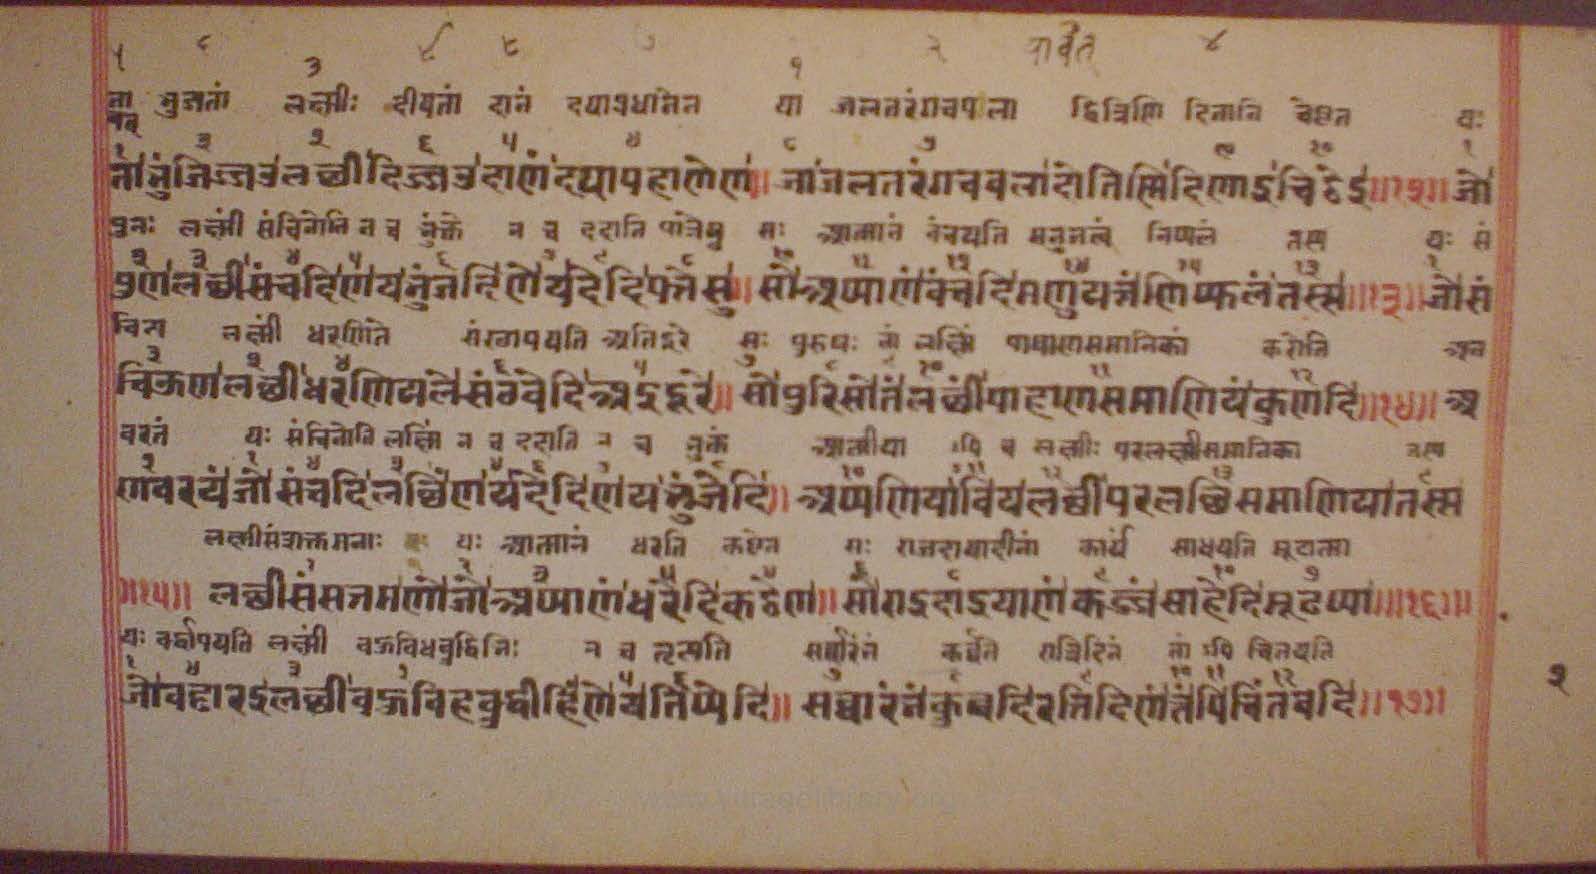 ५ ८ ३ ४ ८ ७ १ २ यावत् ४
ता भुज्यतां लक्ष्मीः दीयतां दानं दयाप्रधानेन या जलतरंगचपला द्वित्रिणि दिनानि चेष्टते यः
ता भुंजिज्जउ लच्छी दिज्जउ दाणं दयापहाणेण॥ जा जलतरंगचवला दो तिण्णि दिणाइ चिट्ठेइ॥१२॥ जो
पुनः लक्ष्मीं संचिनोति न च भुंक्ते न च ददाति पात्रेषु सः आत्मानं वंचयति मनुजत्वं निष्फलं तस्य यः सं
पुण लच्छीं संचदि ण य भुंजदि णेय देदि पत्तेसु॥ सो अप्पाणं वंचदि मणुयत्तं णिप्फलं तस्स॥१३॥ जो सं
चित्य लक्ष्मीं धरणितले संस्थापयति अतिदूरे सः पुरुषः तां लक्ष्मीं पाषाणसमानिकां करोति अन
चिऊण लच्छीं धरणियले संठवेदि अइदूरे॥ सो पुरिसो तं लच्छीं पाहाणसमाणियं कुणदि॥१४॥ अ
वरतं यः संचिनोति लक्ष्मीं न च ददाति न च भुंक्ते आत्मीया ऽपि च लक्ष्मीः परलक्ष्मीसमानिका तस्य
णवरयं जो संचदि लच्छिं ण य देदि ण य भुंजेदि॥ अप्पणिया वि य लच्छी परलच्छिसमाणिया तस्स
लक्ष्मीसंशक्तमनाः यः आत्मानं धरति कष्टेन सः राजदायादीनां कार्यं साधयति मूढात्मा
॥१५॥ लच्छीसंसत्तमणो जो अप्पाणं धरेदि कट्ठेण॥ सो राइदाइयाणं कज्जं साहेदि मूढप्पा॥१६॥
यः वर्द्धापयति लक्ष्मीं बहुविधबुद्धिभिः न च तृप्यति सर्वारंभं कुर्वते रात्रिदिनं तं ऽपि चिंतयति
जो वड्ढारइ लच्छीं बहुविहबुद्धीहिं णेय तिप्पेदि॥ सव्वारंभं कुव्वदि रत्तिदिणं तं पि चिंतवदि॥१७॥
२